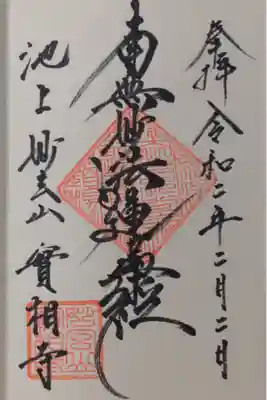 奉拝 令和二年二月二日
南無妙法蓮華経
池上 妙玄山 實相寺